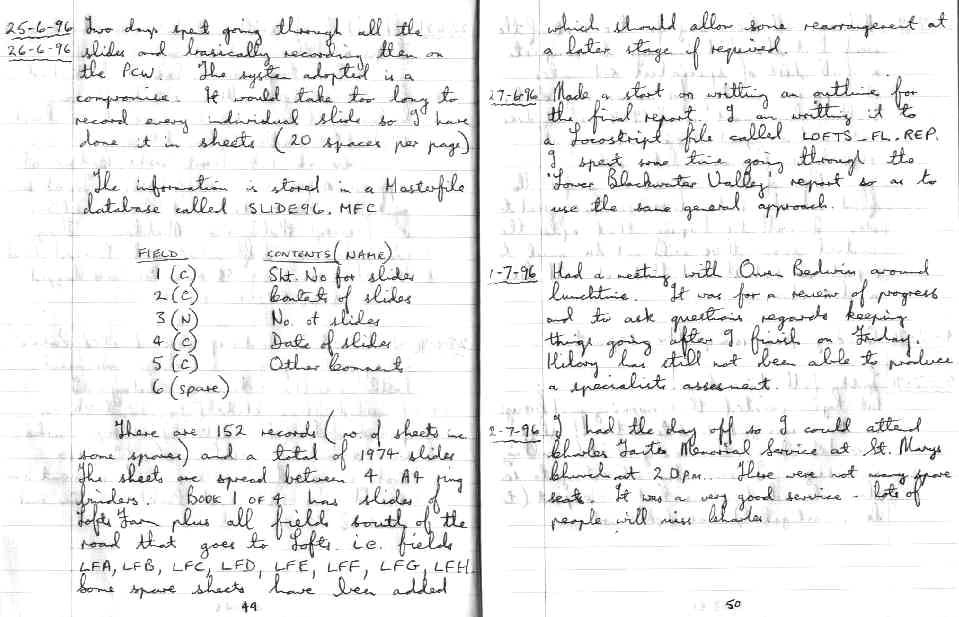 25-6-96 Two days spent going through all the
26-6-96 slides and basically recording them on
the PCW. The system adopted is a
compromise. It would take too long to
record every individual slide so I have
done it in sheets (20 spaces per page)
The information is stored in a Masterfile
database called SLIDE96.MFC
FIELD CONTENTS (NAME)
1 (C) Sht. No for slides
2 (C) Contents of slides
3 (N) No. of slides
4 (C) Date of slides
5 (C) Other Comments
6 (spare)
There are 152 records (no. of sheets inc
some spares) and a total of 1974 slides
The sheets are spread between 4 A4 ring
binders. BOOK 1 OF 4 has slides of
Lofts Farm plus all fields south of the
road that goes to Lofts. i.e. fields
LFA, LFB, LFC, LFD, LFE, LFF, LFG, LFH.
Some spare sheets have been added
49
which should allow some rearrangement at
a later stage if required.
27-6-96 Made a start on writting an outline for
the final report. I am writting it to
a Locoskript file called LOFTS_FL.REP.
I spent some time going through the
'Lower Blackwater Valley' report so as to
use the same general approach.
1-7-96 Had a meeting with Owen Bedwin around
lunchtime. It was for a review of progress
and to ask questions regards keeping
things going after I finish on Friday.
Hilary has still not been able to produce
a specialists assesment.
2-7-96 I had the day off so I could attend
Charles Memorial Service at St. Marys
Church at 2.0pm. There were not many spare
seats. It was a very good service - lots of
people will miss Charles
50